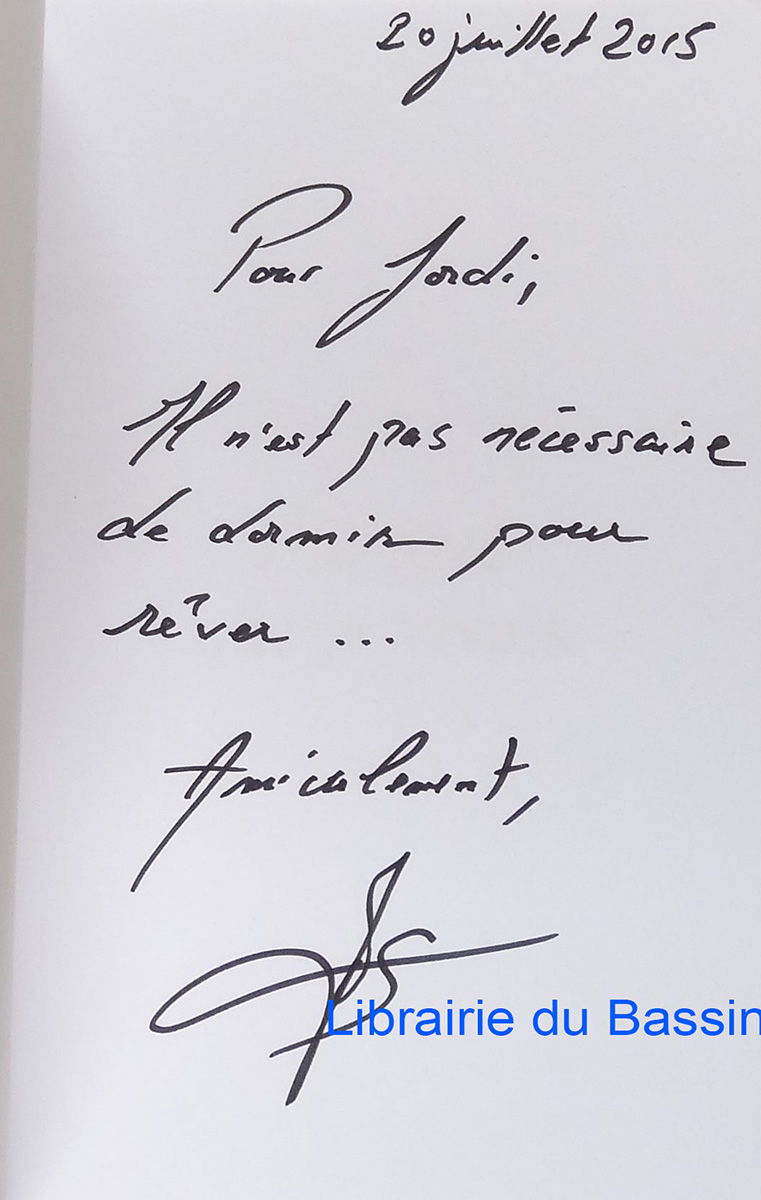 20 juillet 2015
Pour Jordi,
Il n'est pas nécessaire
de dormir pour
rêver ...
Amicalement,
Librairie du Bassin